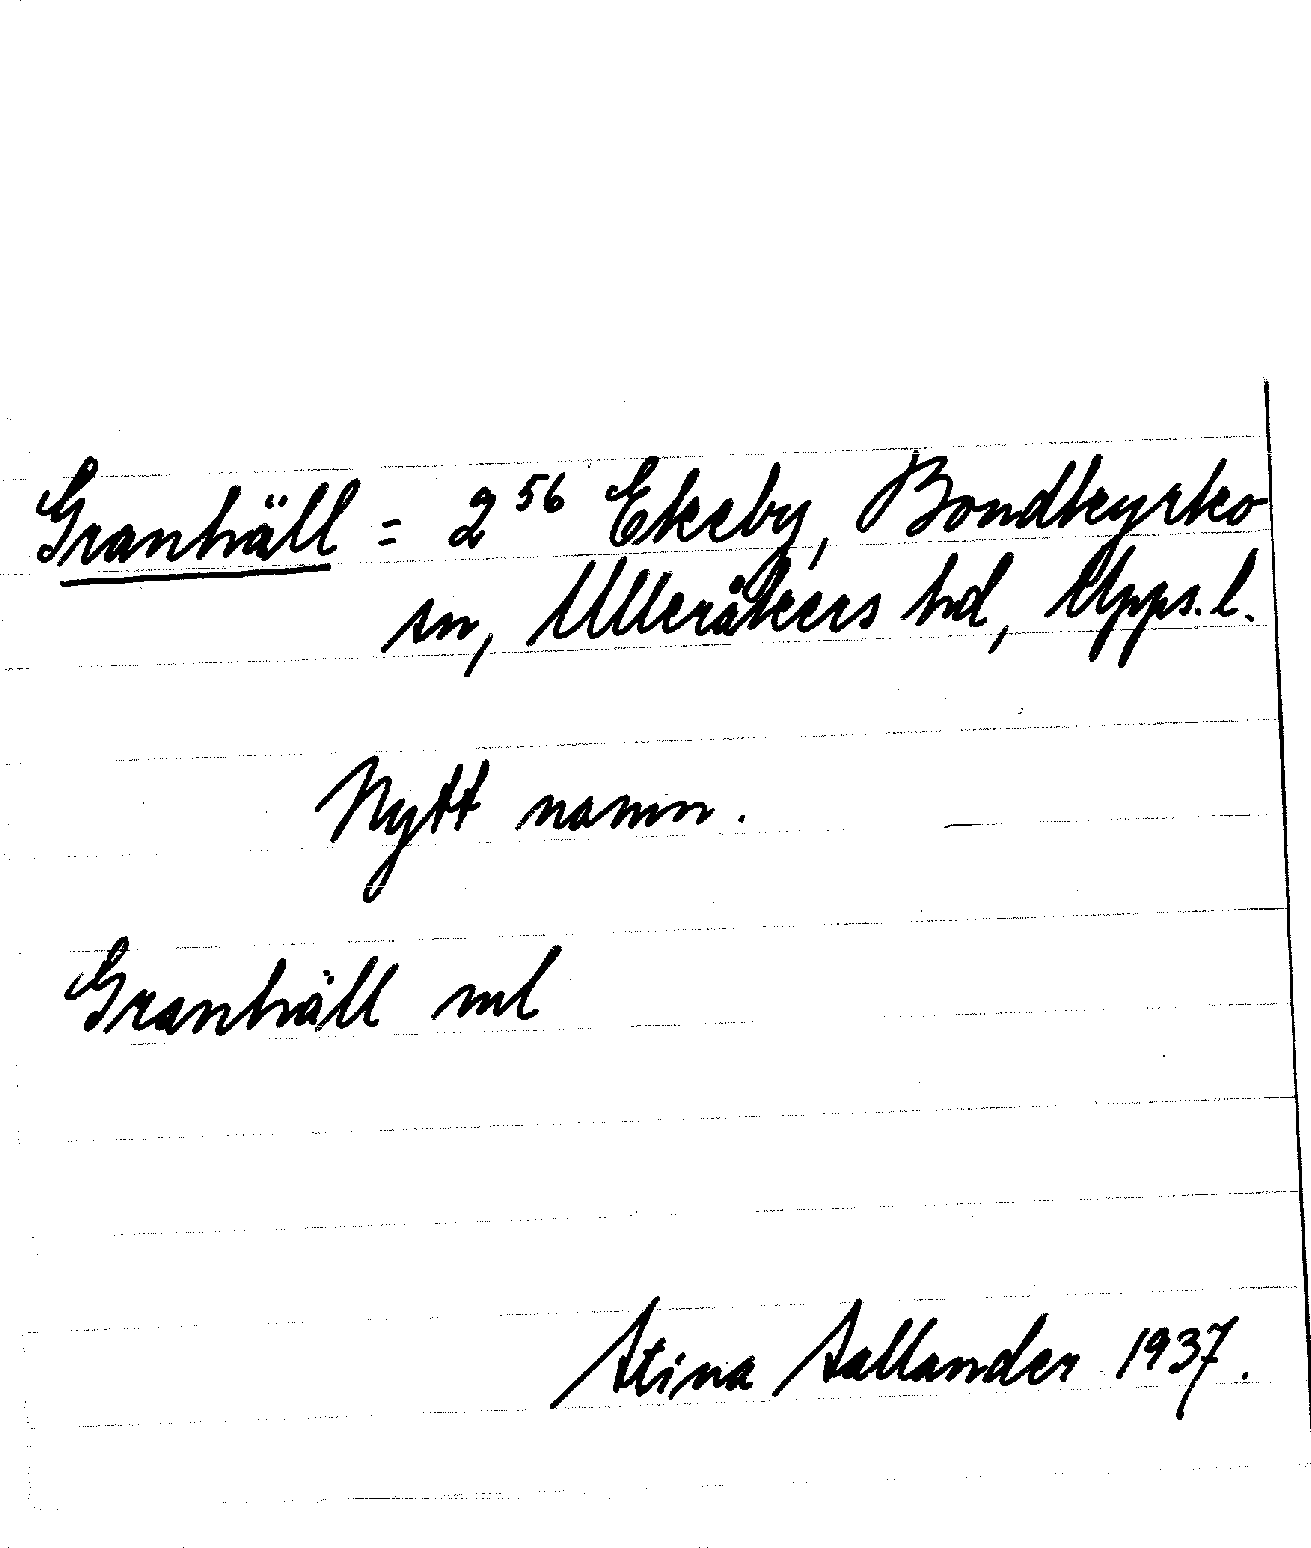 Granhäll = 2⁵⁶ Ekeby, Bondkyrko
sn, Ulleråkers hd, Upps. l.
Nytt namn.
Granhäll ml
Stina Sallander 1937.